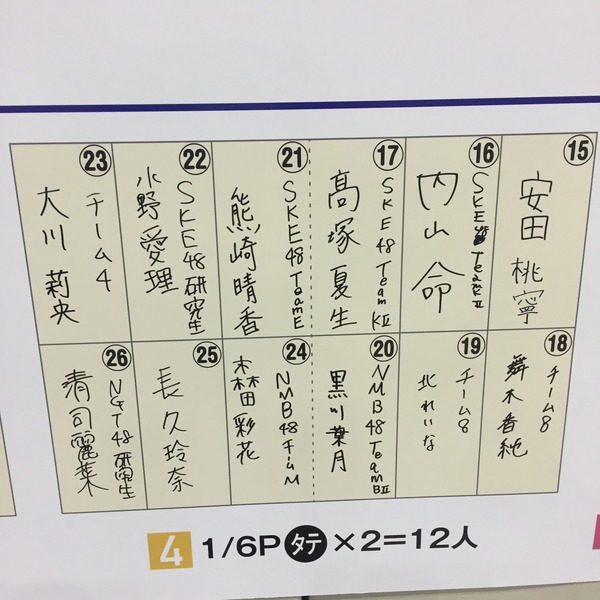 ⑮
安田桃寧
⑯
SKE48 TeamKⅡ
内山命
⑰
SKE48 TeamKⅡ
髙塚夏生
㉑
SKE48 TeamE
熊崎晴香
㉒
SKE48 研究生
小野愛理
㉓
チーム4
大川莉央
⑱
チーム8
舞木香純
⑲
チーム8
北れいな
⑳
NMB48 TeamBⅡ
黒川葉月
㉔
NMB48 チームM
林田彩花
㉕
長久玲奈
㉖
NGT48 研究生
清司麗菜
4 1/6P タテ×2=12人